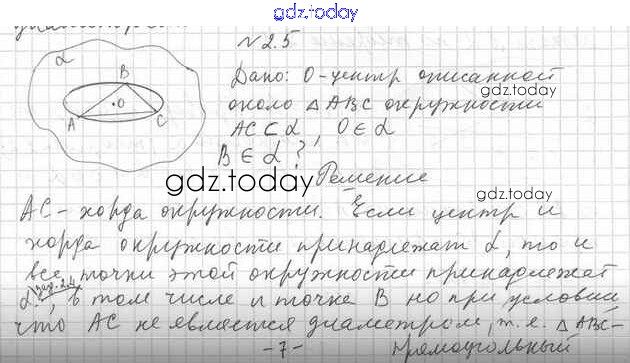 gdz.today
№2.5
α
B
O
A
C
Дано: O-центр описанной
около △ABC окружности
AC⊂α, O∈α
gdz.today
B∈α?
gdz.today
Решение
gdz.today
AC-хорда окружности. Если центр и
хорда окружности принадлежат α, то и
все точки этой окружности принадлежат
зад. 2.4
α, в том числе и точка B но при условии
что AC не является диаметром, т.е. △ABC-
-7- прямоугольный